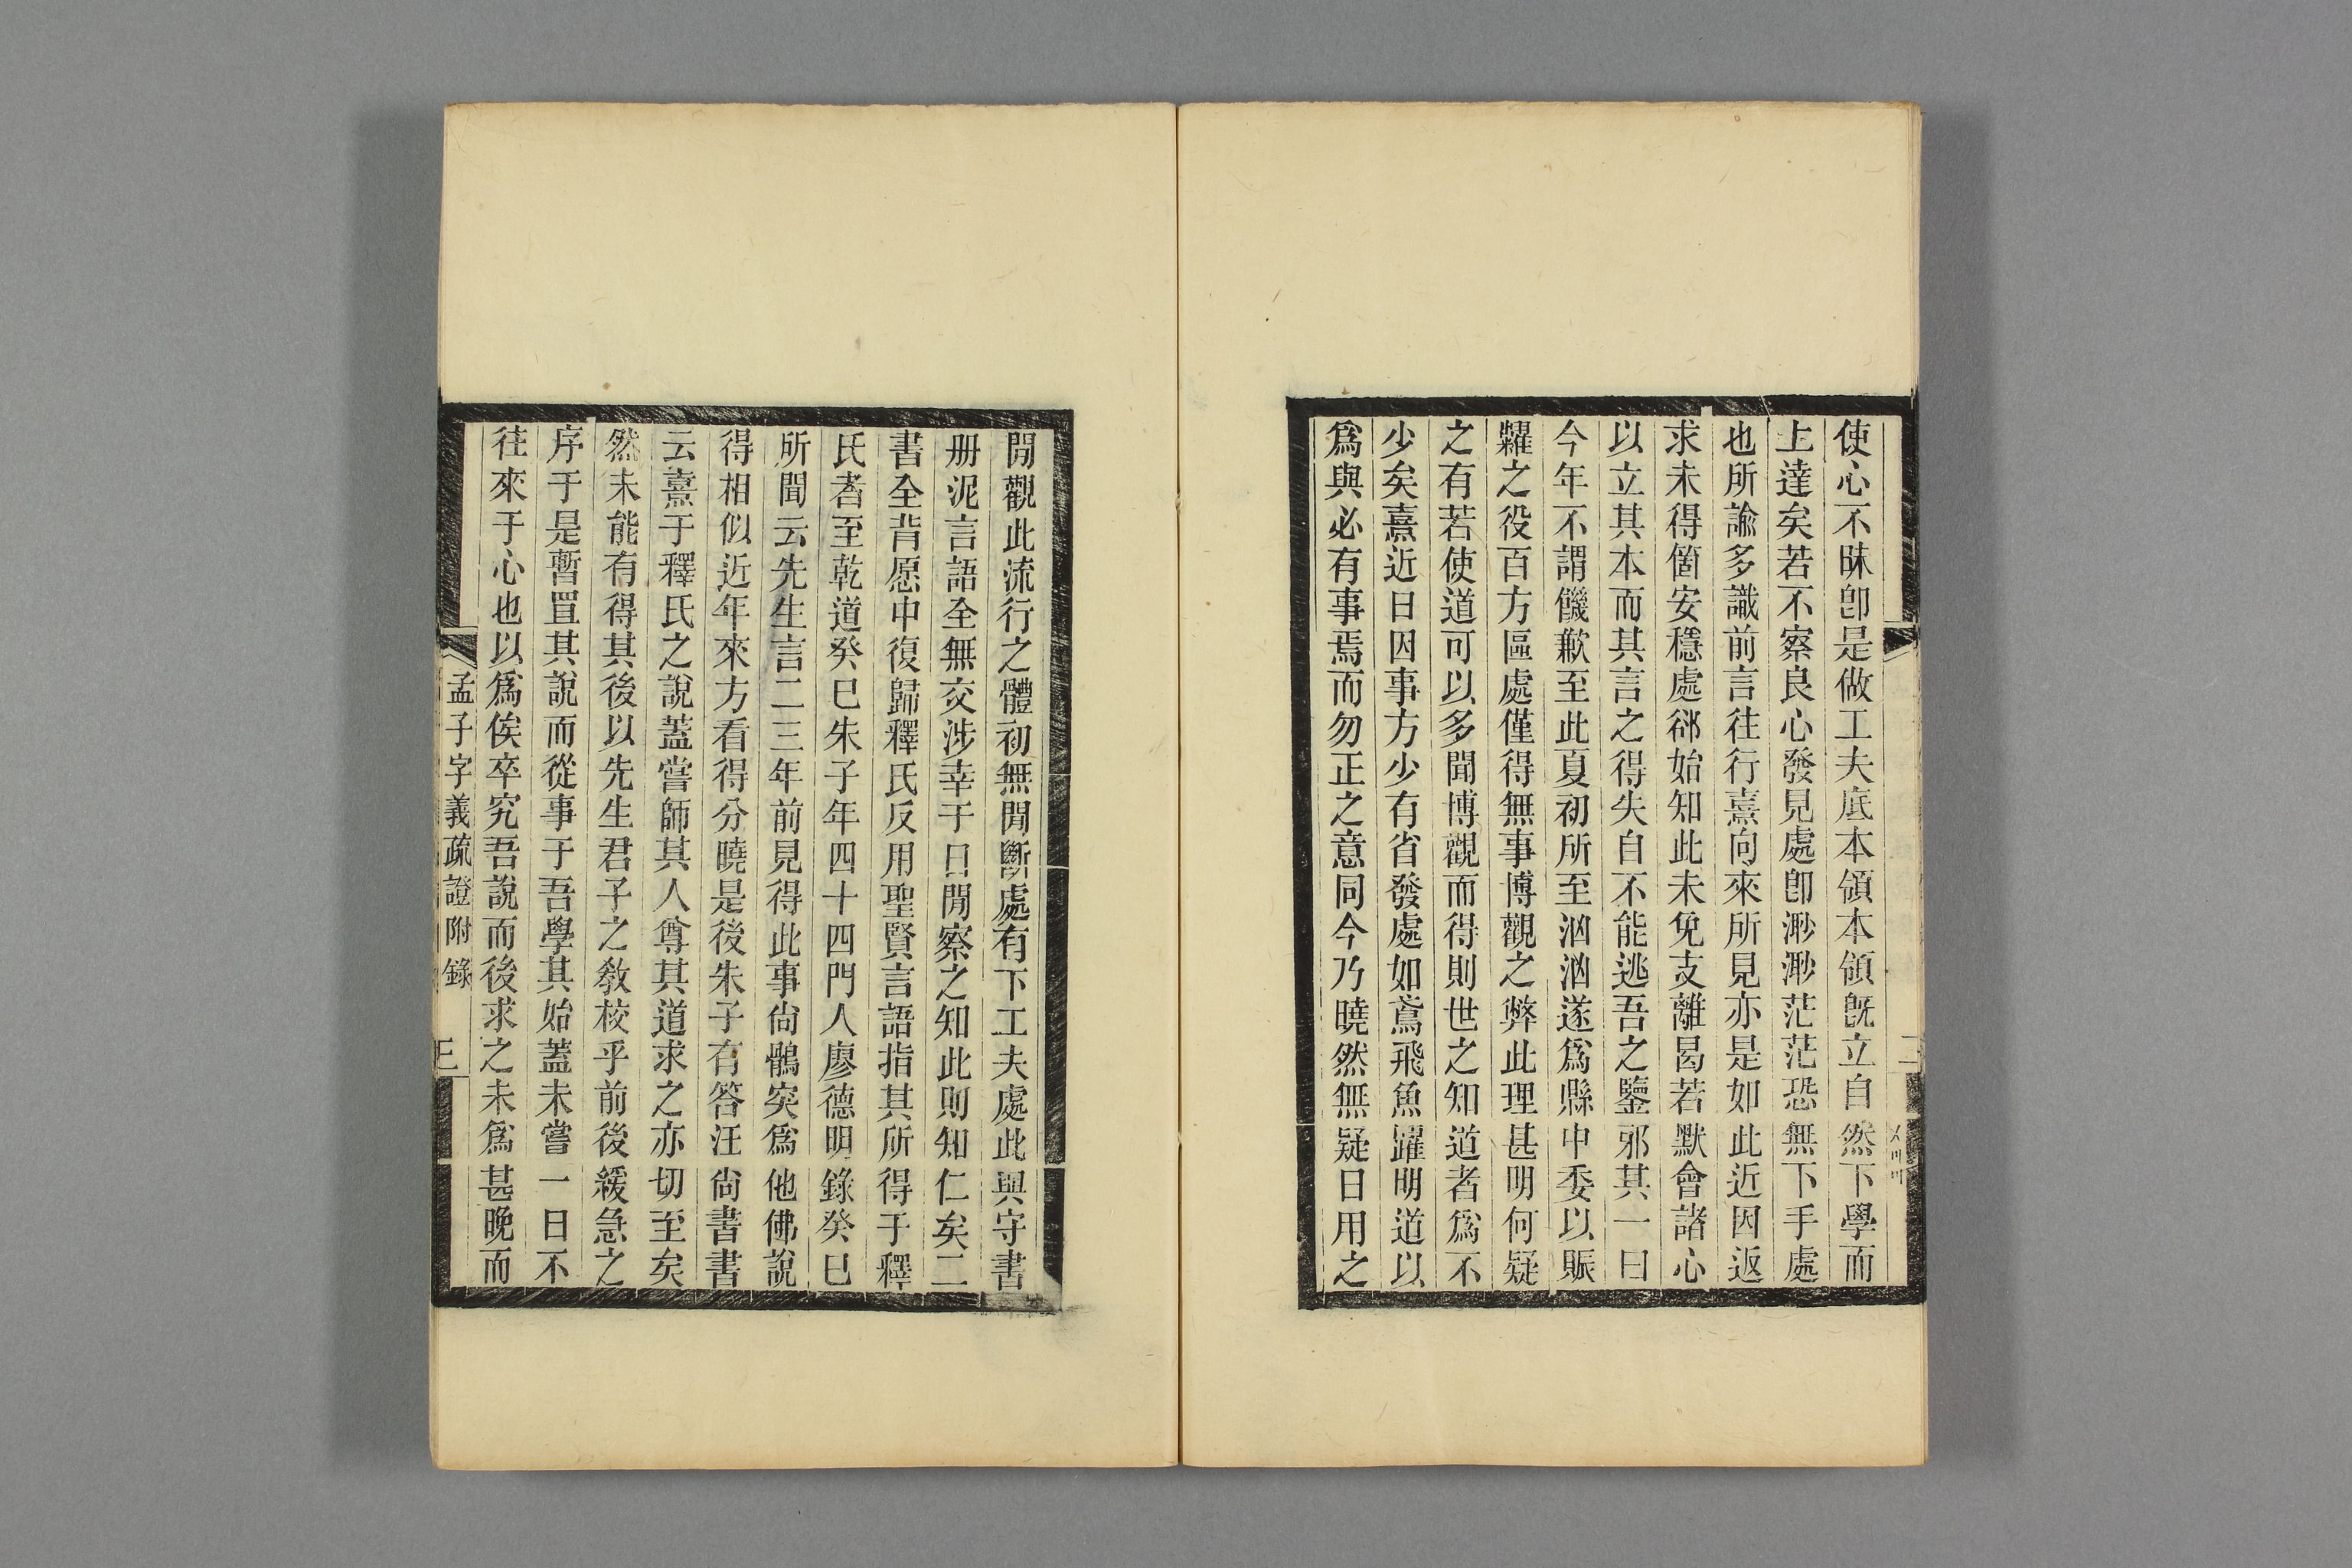 使心不昧卽是做工夫底本領本領旣立自然下學而
上達矣若不察良心發見處卽渺渺茫茫恐無下手處
也所諭多識前言往行熹向來所見亦是如此近因返
求未得箇安穩處卻始知此未免支離曷若默會諸心
以立其本而其言之得失自不能逃吾之鑒邪其一曰
今年不謂饑歉至此夏初所至洶洶遂爲縣中委以賑
糶之役百方區處僅得無事博觀之弊此理甚明何疑
之有若使道可以多聞博觀而得則世之知道者爲不
少矣熹近日因事方少有省發處如鳶飛魚躍明道以
爲與必有事焉而勿正之意同今乃曉然無疑日用之
閒觀此流行之體初無閒斷處有下工夫處此與守書
册泥言語全無交涉幸于日閒察之知此則知仁矣二
書全背愿中復歸釋氏反用聖賢言語指其所得于釋
氏者至乾道癸巳朱子年四十四門人廖德明錄癸巳
所聞云先生言二三年前見得此事尙鶻突爲他佛說
得相似近年來方看得分曉是後朱子有答汪尙書書
云熹于釋氏之說蓋嘗師其人尊其道求之亦切至矣
然未能有得其後以先生君子之敎校乎前後緩急之
序于是暫置其說而從事于吾學其始蓋未嘗一日不
往來于心也以爲俟卒究吾說而後求之未爲甚晚而
孟子字義疏證附錄
三